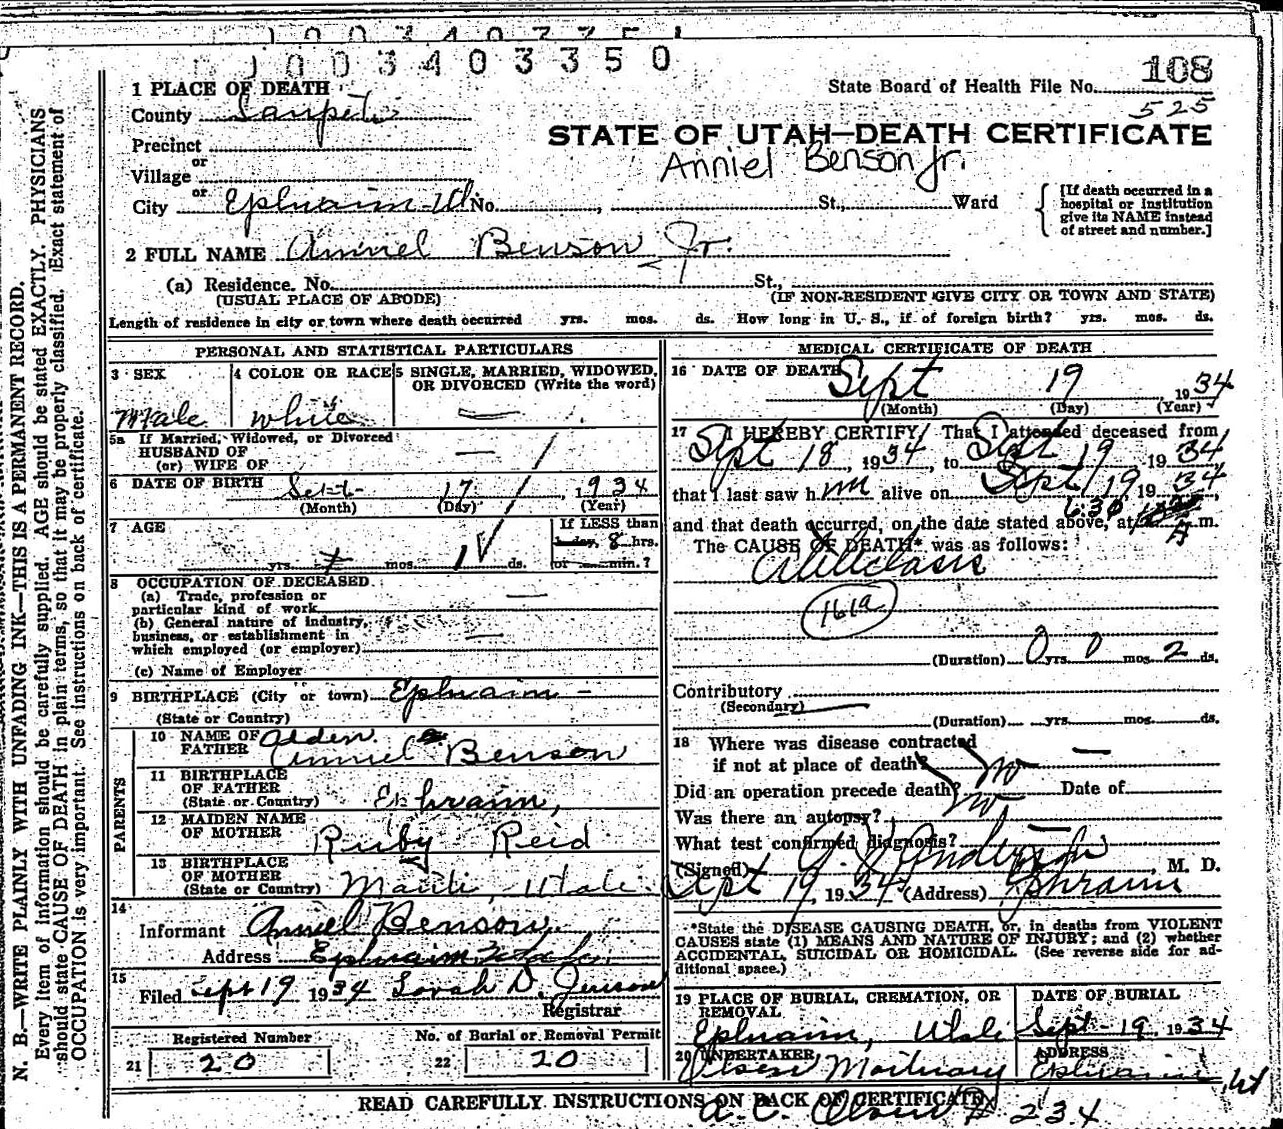 1003403350
1 PLACE OF DEATH
State Board of Health File No. 108
County Sanpete
525
STATE OF UTAH—DEATH CERTIFICATE
Precinct
or
Anniel Benson Jr.
Village
or
City Ephraim Ut No. , St., Ward
[If death occurred in a
hospital or institution
give its NAME instead
of street and number.]
2 FULL NAME Anniel Benson Jr.
(a) Residence. No. St.,
(USUAL PLACE OF ABODE) (IF NON-RESIDENT GIVE CITY OR TOWN AND STATE)
Length of residence in city or town where death occurred yrs. mos. ds. How long in U. S., if of foreign birth? yrs. mos. ds.
PERSONAL AND STATISTICAL PARTICULARS
3 SEX 4 COLOR OR RACE 5 SINGLE, MARRIED, WIDOWED,
OR DIVORCED (Write the word)
Male white —
5a If Married, Widowed, or Divorced
HUSBAND OF —
(or) WIFE OF
6 DATE OF BIRTH Sept 17, 1934
(Month) (Day) (Year)
7 AGE
If LESS than
1 day, 8 hrs.
yrs. mos. 1 ds. or min.?
8 OCCUPATION OF DECEASED
(a) Trade, profession or
particular kind of work —
(b) General nature of industry,
business, or establishment in
which employed (or employer) —
(c) Name of Employer
9 BIRTHPLACE (City or town) Ephraim -
(State or Country)
PARENTS
10 NAME OF
FATHER Alden
Anniel Benson
11 BIRTHPLACE
OF FATHER
(State or Country) Ephraim,
12 MAIDEN NAME
OF MOTHER Ruby Reid
13 BIRTHPLACE
OF MOTHER
(State or Country) Manti - Utah
14
Informant Anniel Benson
Address Ephraim Utah.
15
Filed Sept 19 1934 Sarah D. Jenson
Registrar
Registered Number No. of Burial or Removal Permit
21 20 22 20
MEDICAL CERTIFICATE OF DEATH
16 DATE OF DEATH
Sept 19 1934
(Month) (Day) (Year)
17 I HEREBY CERTIFY, That I attended deceased from
Sept 18, 1934, to Sept 19 1934
that I last saw him alive on Sept 19, 1934,
6:30
and that death occurred, on the date stated above, at A m.
The CAUSE OF DEATH* was as follows:
Atelectasis
161a
(Duration) 0 yrs 0 mos. 2 ds.
Contributory
(Secondary)
(Duration) yrs. mos. ds.
18 Where was disease contracted
if not at place of death? —
Did an operation precede death? no Date of
Was there an autopsy? no
What test confirmed diagnosis? —
(Signed) Anderson, M. D.
Sept 19, 1934 (Address) Ephraim
*State the DISEASE CAUSING DEATH, or, in deaths from VIOLENT
CAUSES state (1) MEANS AND NATURE OF INJURY; and (2) whether
ACCIDENTAL, SUICIDAL OR HOMICIDAL. (See reverse side for ad-
ditional space.)
19 PLACE OF BURIAL, CREMATION, OR
REMOVAL DATE OF BURIAL
Ephraim, Utah Sept - 19, 1934
20 UNDERTAKER ADDRESS
Olsen Mortuary Ephraim, Ut
READ CAREFULLY INSTRUCTIONS ON BACK OF CERTIFICATE
A. C. Olsen # 234
N. B.—WRITE PLAINLY WITH UNFADING INK—THIS IS A PERMANENT RECORD.
Every item of information should be carefully supplied. AGE should be stated EXACTLY. PHYSICIANS
should state CAUSE OF DEATH in plain terms, so that it may be properly classified. Exact statement of
OCCUPATION is very important. See instructions on back of certificate.